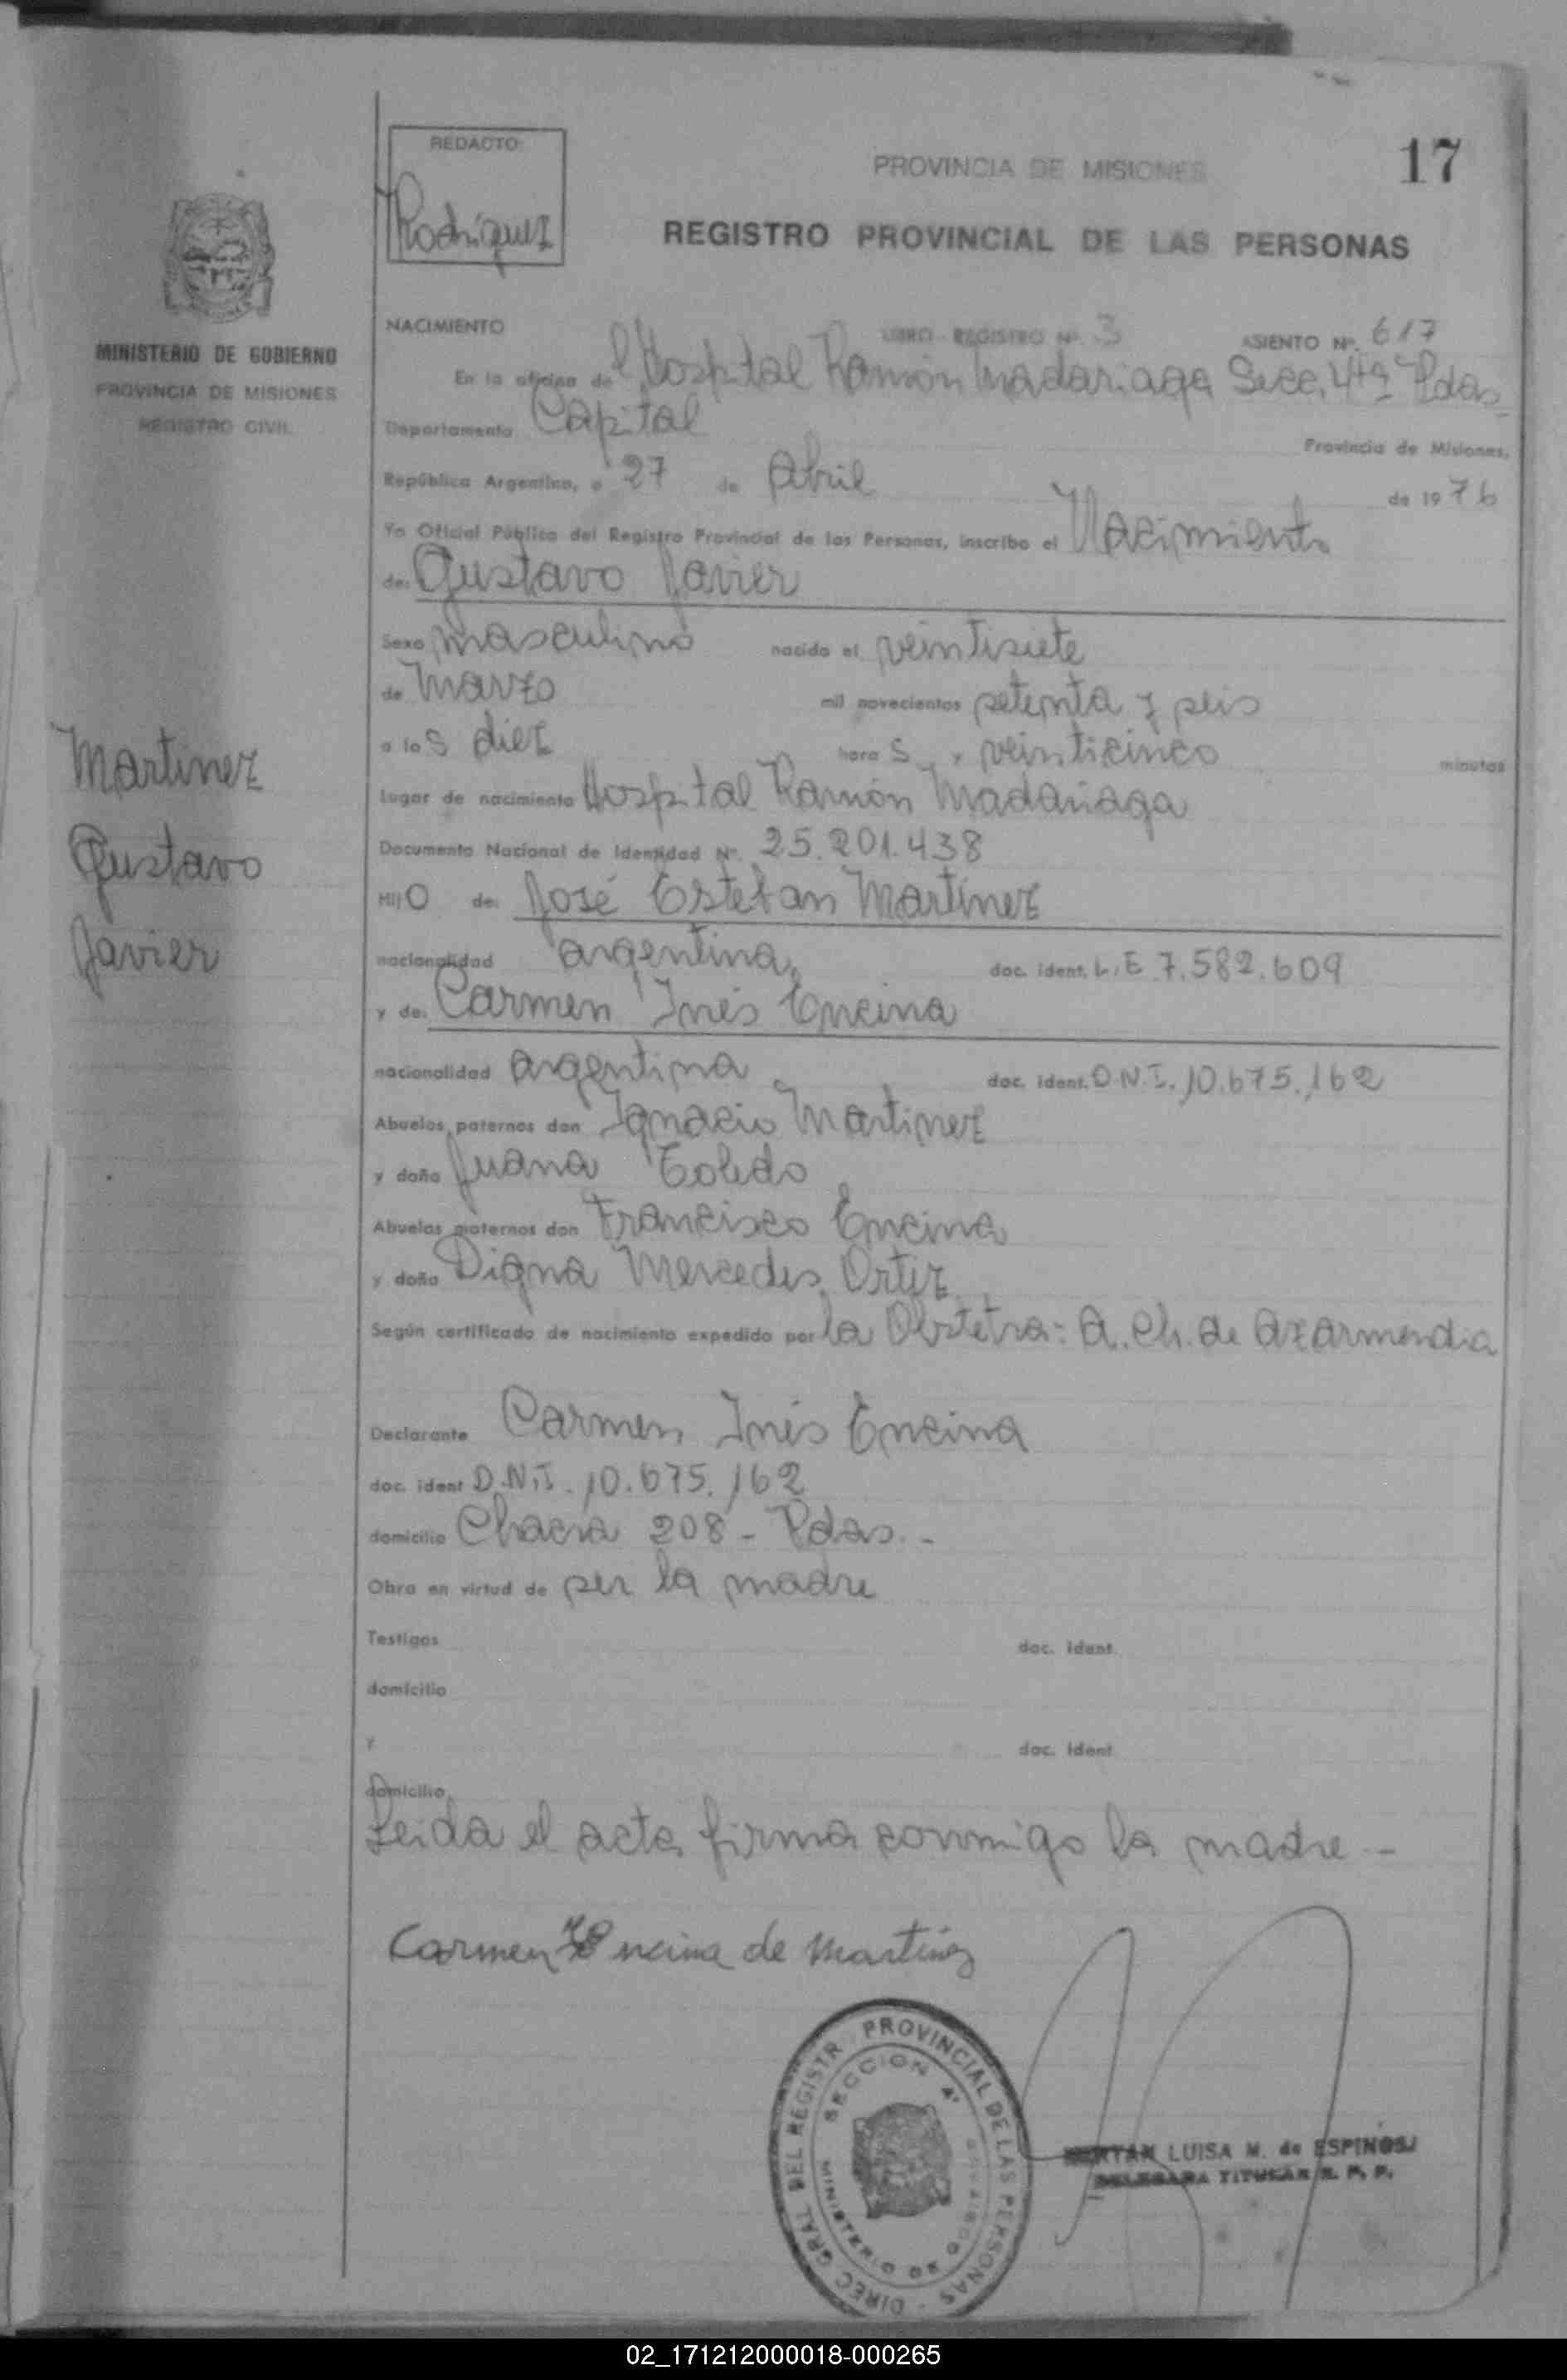 REDACTO:
Rodríguez
PROVINCIA DE MISIONES
17
REGISTRO PROVINCIAL DE LAS PERSONAS
MINISTERIO DE GOBIERNO
PROVINCIA DE MISIONES
REGISTRO CIVIL
NACIMIENTO LIBRO REGISTRO Nº. 3 ASIENTO Nº. 617
En la oficina de Hospital Ramón Madariaga Secc. 4ta Pdas
Departamento Capital Provincia de Misiones,
República Argentina, a 27 de Abril de 1976
Yo Oficial Público del Registro Provincial de las Personas, inscribo el Nacimiento
de: Gustavo Javier
Sexo masculino nacido el veintisiete
de Marzo mil novecientos setenta y seis
a las diez horas y veinticinco minutos
Martinez
Gustavo
Javier
Lugar de nacimiento Hospital Ramón Madariaga
Documento Nacional de Identidad Nº. 25.201.438
Hijo de: José Esteban Martínez
nacionalidad argentina, doc. ident. L.E 7.582.609
y de: Carmen Inés Encina
nacionalidad argentina doc. ident. D.N.I. 10.675.162
Abuelos paternos don Ignacio Martinez
y doña Juana Toledo
Abuelos maternos don Francisco Encina
y doña Digna Mercedes Ortiz
Según certificado de nacimiento expedido por la Obstetra: A. Ch. de Azarmendia
Declarante Carmen Inés Encina
doc. ident D.N.I. 10.675.162
domicilio Chacra 208 - Pdas. -
Obra en virtud de ser la madre
Testigos doc. ident.
domicilio
y doc. ident
domicilio
Leida el acta firma conmigo la madre -
Carmen I Encina de Martinez
DIREC GRAL DEL REGISTR PROVINCIAL DE LAS PERSONAS
SECCION 4ª
MINISTERIO DE GOBIERNO
LUISA M. de ESPINOSA
DELEGADA TITULAR R. P. P.
02_171212000018-000265